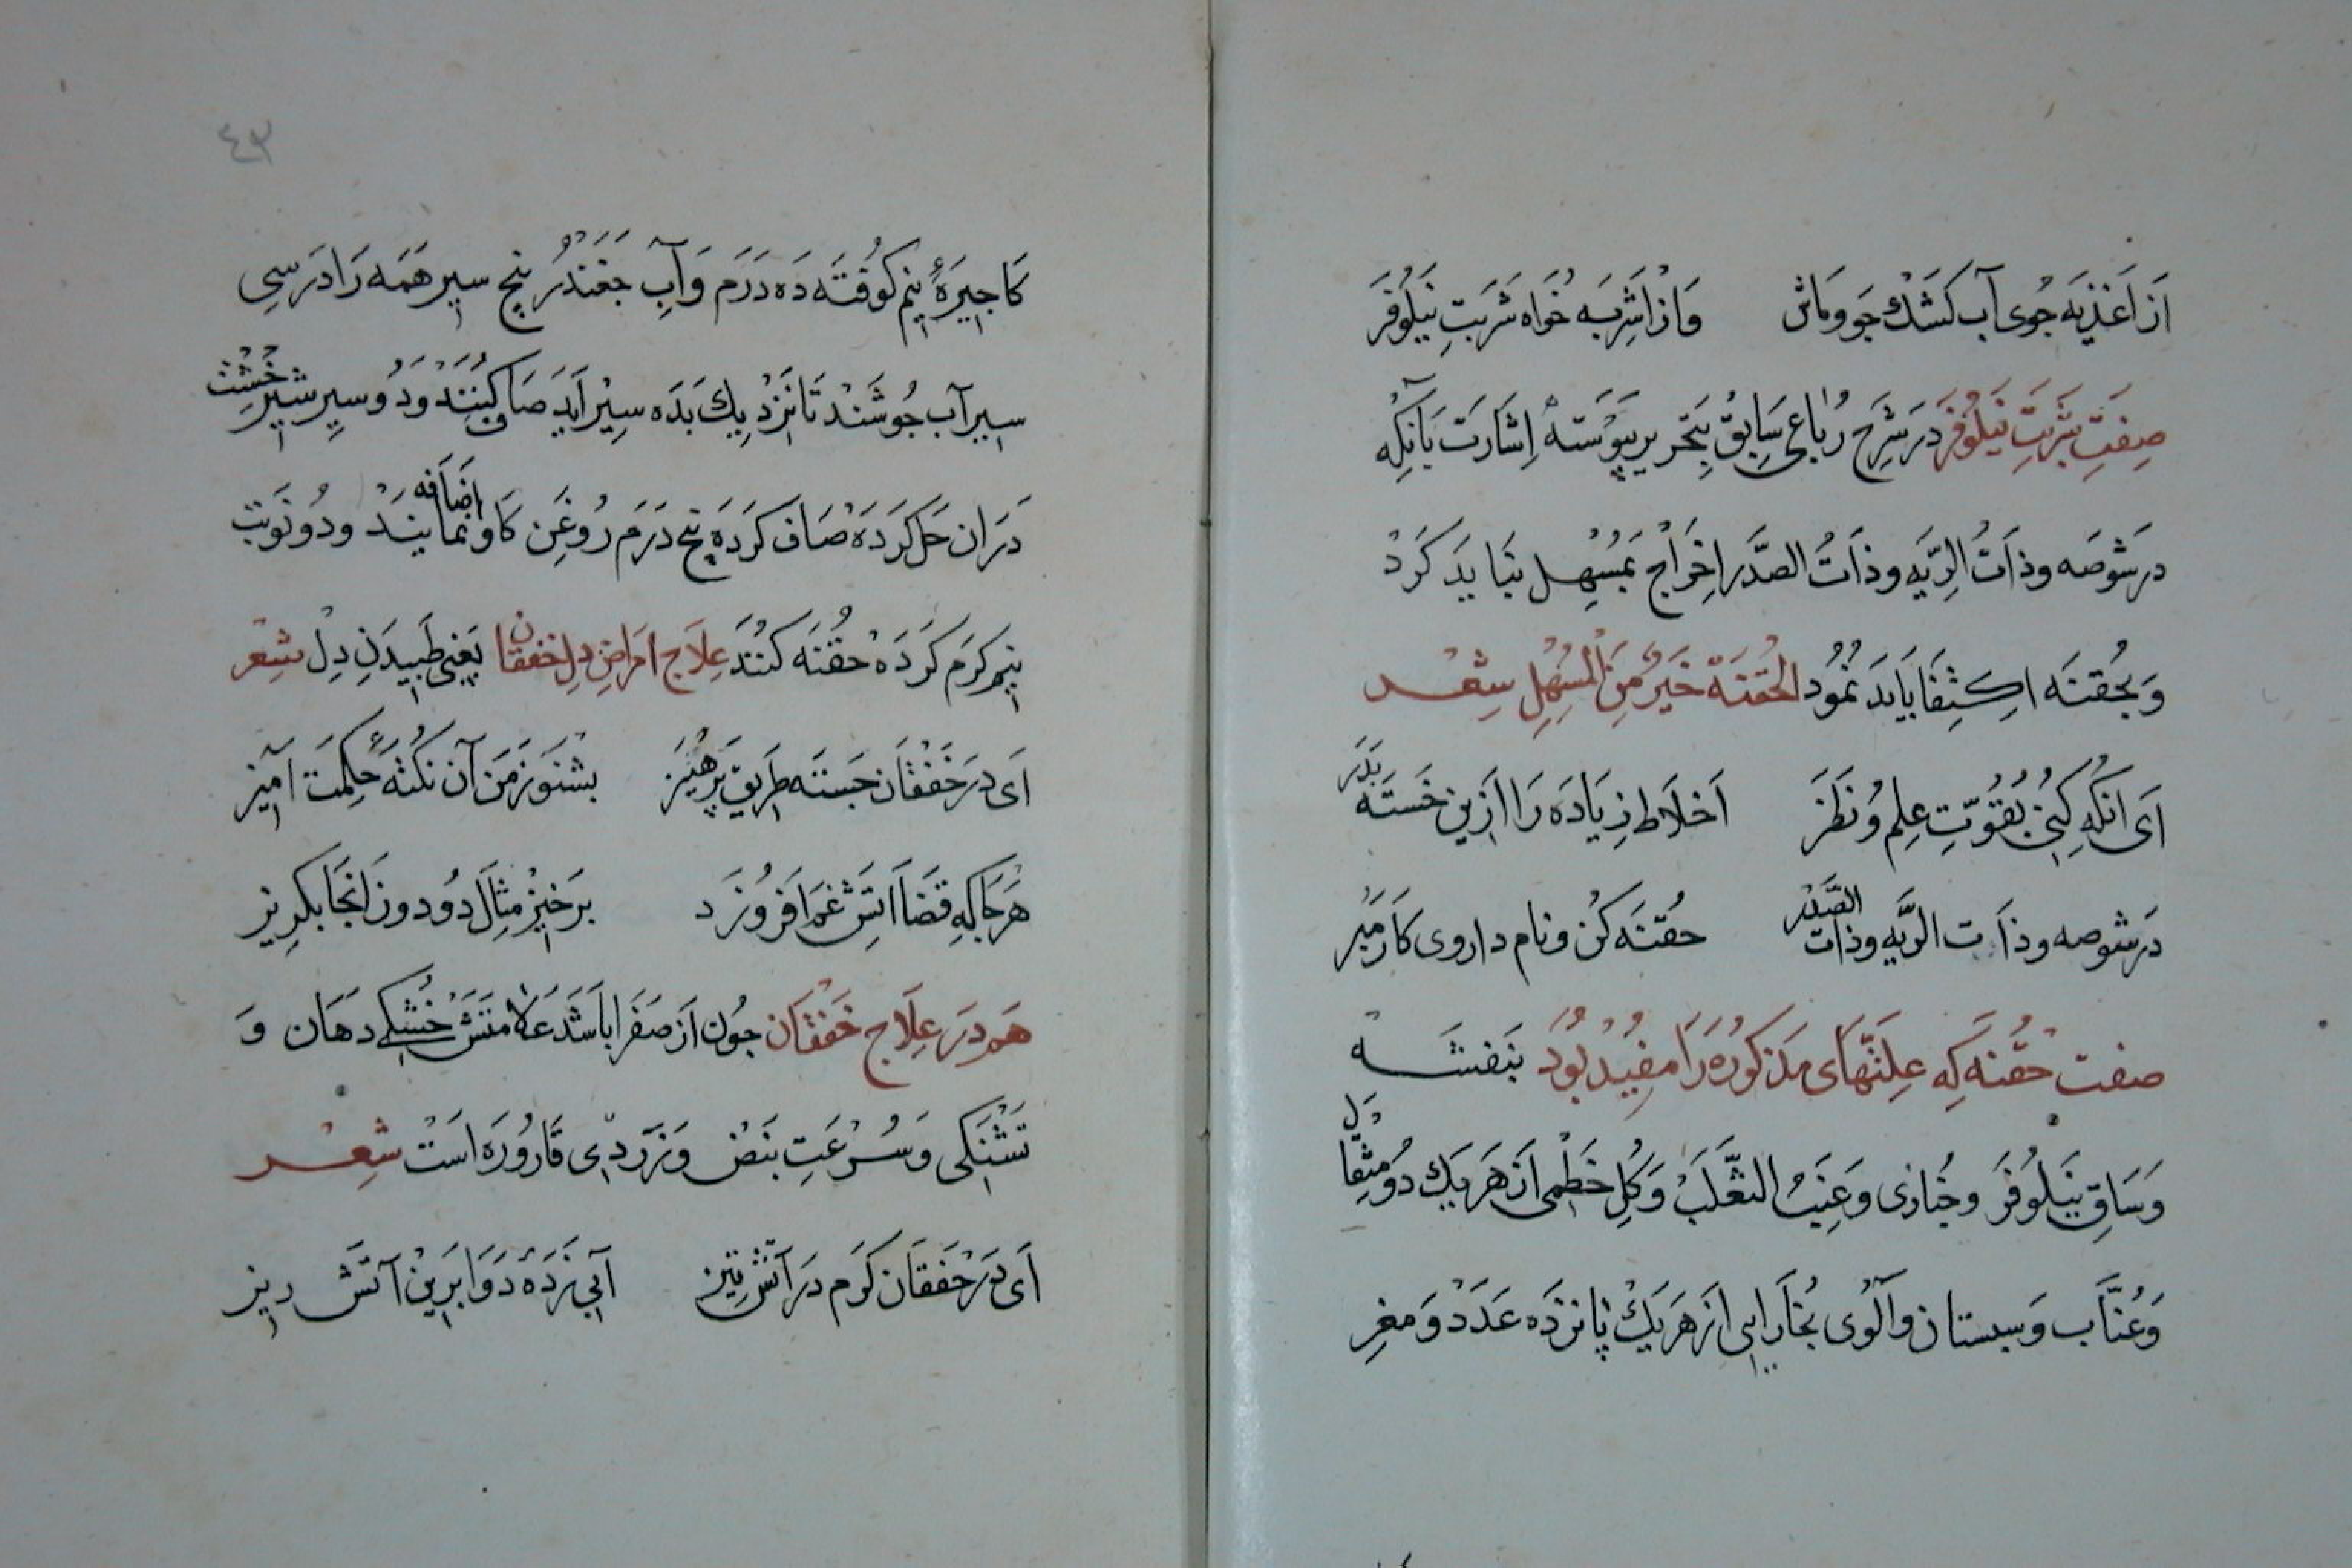 اَز اَغذیَه جُوی آب کَشْك جَو و مَاش وَ از اَشْرِبَه خُوَاه شَرْبَتِ نَیلُوفَر
صِفَتِ شَرْبَتِ نَیلُوفَر دَر شَرْحِ رُبَاعی سَابِقْ بِتَحریر پیوَسته اِشَارَتْ بَانکِه
در شَوصَه و ذاتُ الرِیَه و ذَاتُ الصَّدْر اِخرَاج بمُسْهِل نبَایَد کَرْد
وَ بحُقنَه اکِتِفَا بَایَد نمُود الحُقنَة خَیرٌ مِنَ المُسْهِلِ شِعْر
اَی انکِه کُنی بقُوّتِ عِلم وُ نَظَر اَخلَاط زیَادَه رَا ازین خَستَه بدَر
دَر شوصه و ذَات الرِیَّه و ذات الصَّدْر حُقنَه کُن و نام داروی کَار مَبَر
صفت حُقنَه کِه عِلتهَای مَذکُورَه رَا مُفِیْد بُوَدْ بَنَفشَه
وَ سَاقِ نَیلُوفَر و خُبازی و عِنَبُ الثَّعْلَبْ وَ کُلِ خَطْمی اَز هَر یَك دُو مِثقَال
وَ عُنَّاب وَ سبستان و آلُوی بُخَارَایی از هَر یَكْ پَانزدَه عَدَدْ وَ مغزِ
٤٣
کَاجیرَهٔ نیم کوُفتَه دَه دَرَم وَ آبِ جغَندَر پنج سیر هَمَه رَا دَر سِی
سیر آب جُوشَنْد تَا نَزْدِیك بَدَه سِیْر اَیَد صَاف کُنَنَدْ وَ دُو سیرِ شیرخُشْت
دَران حَل کَردَه صَاف کَرْدَه پنج دَرَم رُوغَن کَاو اضَافه نمَایَندْ و دُو نَوبَت
نیم کَرَم کَرْدَه حُقْنَه کُنَنْد عِلَاج امرَاضِ دِل خفَقَان یَعنِی طَپیدَنِ دِلْ شِعْر
اَی دَر خَفَقَان جَستَه طَریق پَرْهِیز بشنَو زَ مَن آن نکْتَهٔ حِکمَت آمیز
هَر جَا کِه قَضَا آتَشِ غَم اَفرُوزَد بَرخیز مِثَالِ دُود و زَانجَا بکرِیز
هَم دَر عِلَاجِ خَفَقَان چُون اَز صَفرَا بَاشَد عَلَامَتَش خُشکی دَهَان وَ
تَشنَکی وَ سُرْعَتِ نَبض وَ زَرْدِی قَارُورَه اَسْت شِعْر
اَی دَر خَفَقَان کَرَم دَر آتَش تیز آبی زدَهٔ دَوَا بَرین آتَش ریز